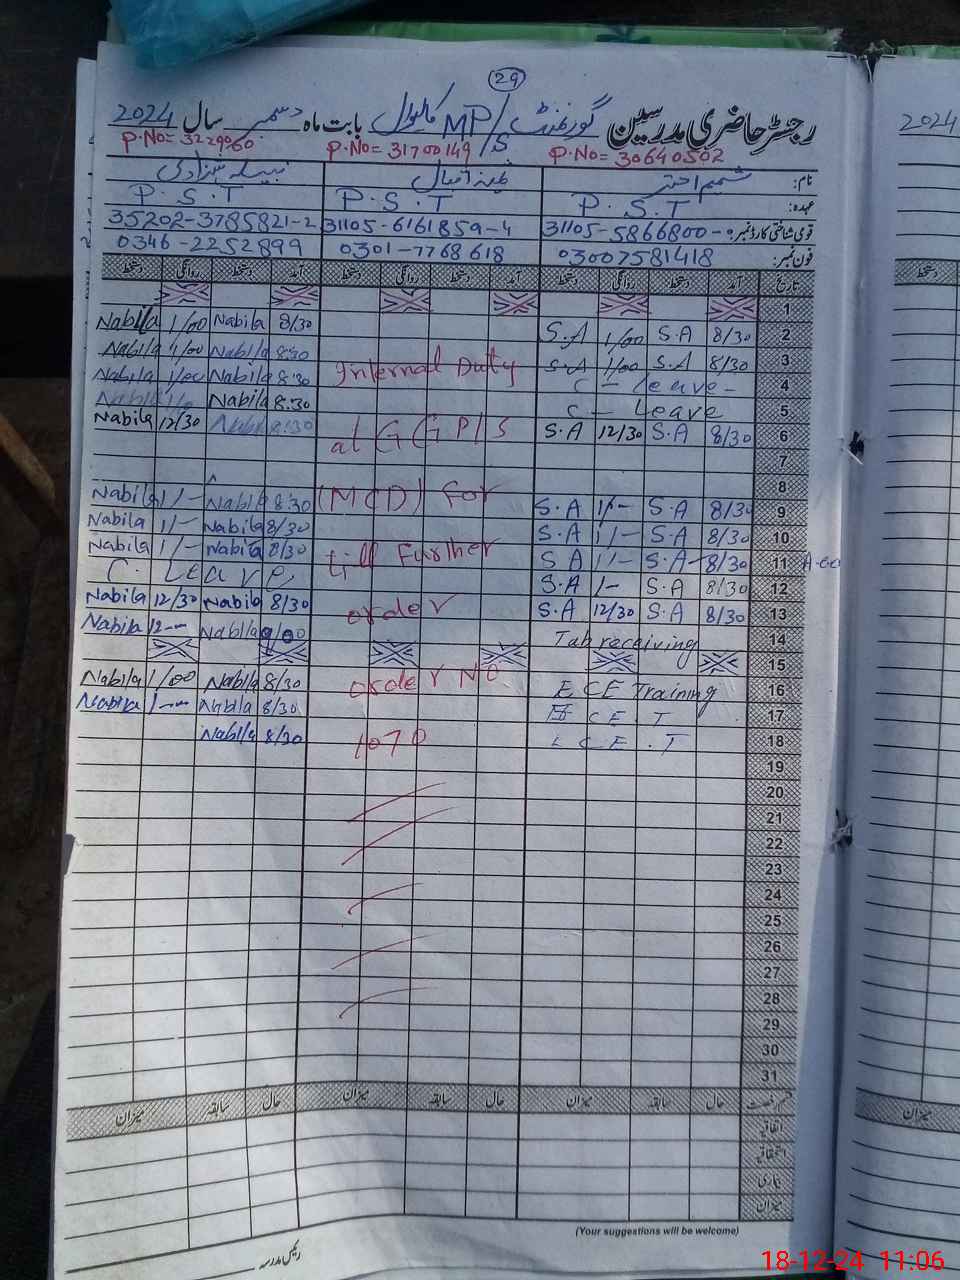 29
رجسٹر حاضری مدرسین گورنمنٹ MP/S بابت ماہ دسمبر سال 2024
P.No= 30640502 P.No= 31700149 P.No= 3229960
نام: شمیم اختر
عہدہ: P.S.T P.S.T P.S.T
قومی شناختی کارڈ نمبر: 31105-5866800-0 31105-6161859-4 35202-3785821-2
فون نمبر: 03007581418 0301-7768618 0346-2252899
تاریخ آمد دستخط روانگی دستخط آمد دستخط روانگی دستخط آمد دستخط روانگی دستخط
1
2 8/30 S.A 1/00 S.A 8/30 Nabila 1/00 Nabila
3 8/30 S.A 1/00 S.A Internal Duty 8:30 Nabila 1/00 Nabila
4 C - leave - 8:30 Nabila 1/00 Nabila
5 C - Leave 8:30 Nabila
6 8/30 S.A 12/30 S.A at GGP/S 8:30 Nabila 12/30 Nabila
7
8
9 8/30 S.A 1/- S.A (MCD) for 8:30 Nabila 1/- Nabila
10 8/30 S.A 1/- S.A 8/30 Nabila 1/- Nabila
11 8/30 S.A 1/- S A till Further 8/30 Nabila 1/- Nabila
12 8/30 S.A 1/- S.A C. Leave
13 8/30 S.A 12/30 S.A order 8/30 Nabila 12/30 Nabila
14 Tab receiving 9/00 Nabila 12-- Nabila
15
16 E C E Training order NO 8/30 Nabila 1/00 Nabila
17 E C E . T 8/30 Nabila 1-- Nabila
18 E C E . T 1070 8/30 Nabila
19
20
21
22
23
24
25
26
27
28
29
30
31
قسم رخصت حال سابقہ میزان حال سابقہ میزان حال سابقہ میزان
اتفاقیہ
استحقاقیہ
بیماری
میزان
(Your suggestions will be welcome)
رئیس مدرسہ
2024
دستخط
میزان
18-12-24 11:06